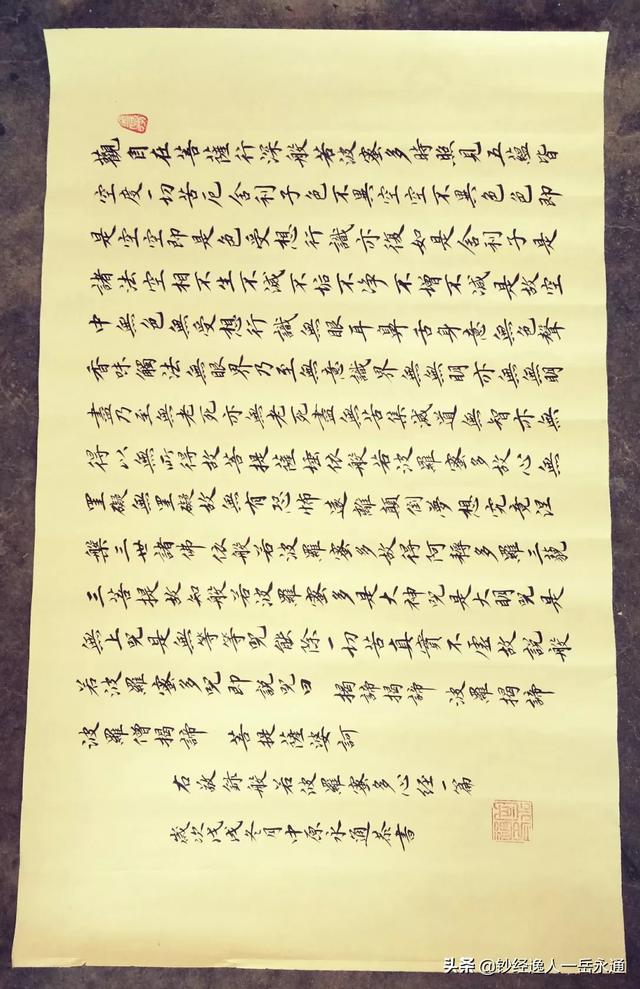 觀自在菩薩行深般若波羅蜜多時照見五蘊皆
空度一切苦厄舍利子色不異空空不異色色即
是空空即是色受想行識亦復如是舍利子是
諸法空相不生不滅不垢不净不增不減是故空
中無色無受想行識無眼耳鼻舌身意無色聲
香味觸法無眼界乃至無意識界無無明亦無無明
盡乃至無老死亦無老死盡無苦集滅道無智亦無
得以無所得故菩提薩埵依般若波羅蜜多故心無
罣礙無罣礙故無有恐怖遠離顛倒夢想究竟涅
槃三世諸佛依般若波羅蜜多故得阿耨多羅三藐
三菩提故知般若波羅蜜多是大神咒是大明咒是
無上咒是無等等咒能除一切苦真實不虛故說般
若波羅蜜多咒即說咒曰 揭諦揭諦 波羅揭諦
波羅僧揭諦 菩提薩婆訶
右敬錄般若波羅蜜多心經一篇
歲次戊戌冬月中原永通恭書
头条 @钞经逸人一岳永通